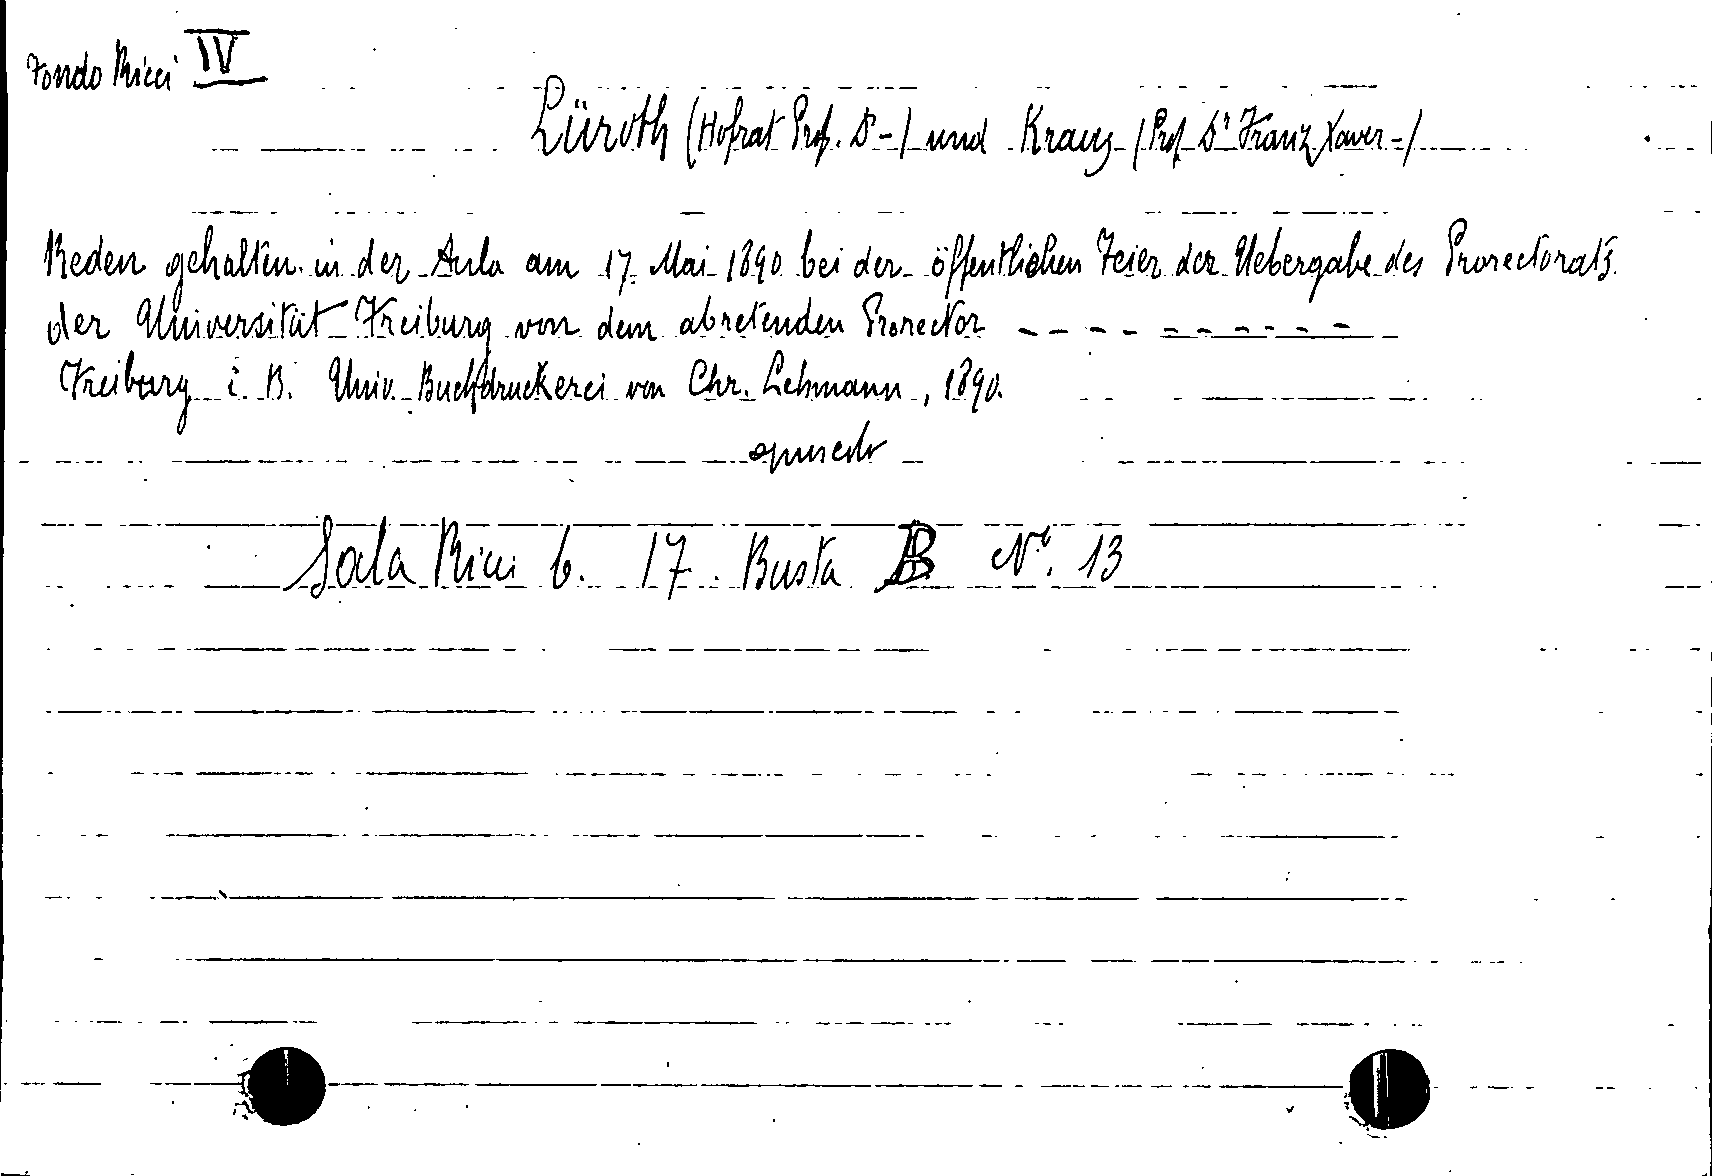 Fondo Ricci IV
Lüroth (Hofrat Prof. Dr -) und Kraus (Prof. Dr Franz Xaver -)
Reden gehalten in der Aula am 17. Mai 1890 bei der öffentlichen Feier der Uebergabe des Prorectorats
der Universität Freiburg von dem abretenden Prorector - - - - - - - - - -
Freiburg i. B. Univ. Buchdruckerei von Chr. Lehmann, 1890.
opuscolo
Sala Ricci 6. 17. Busta B N.º 13